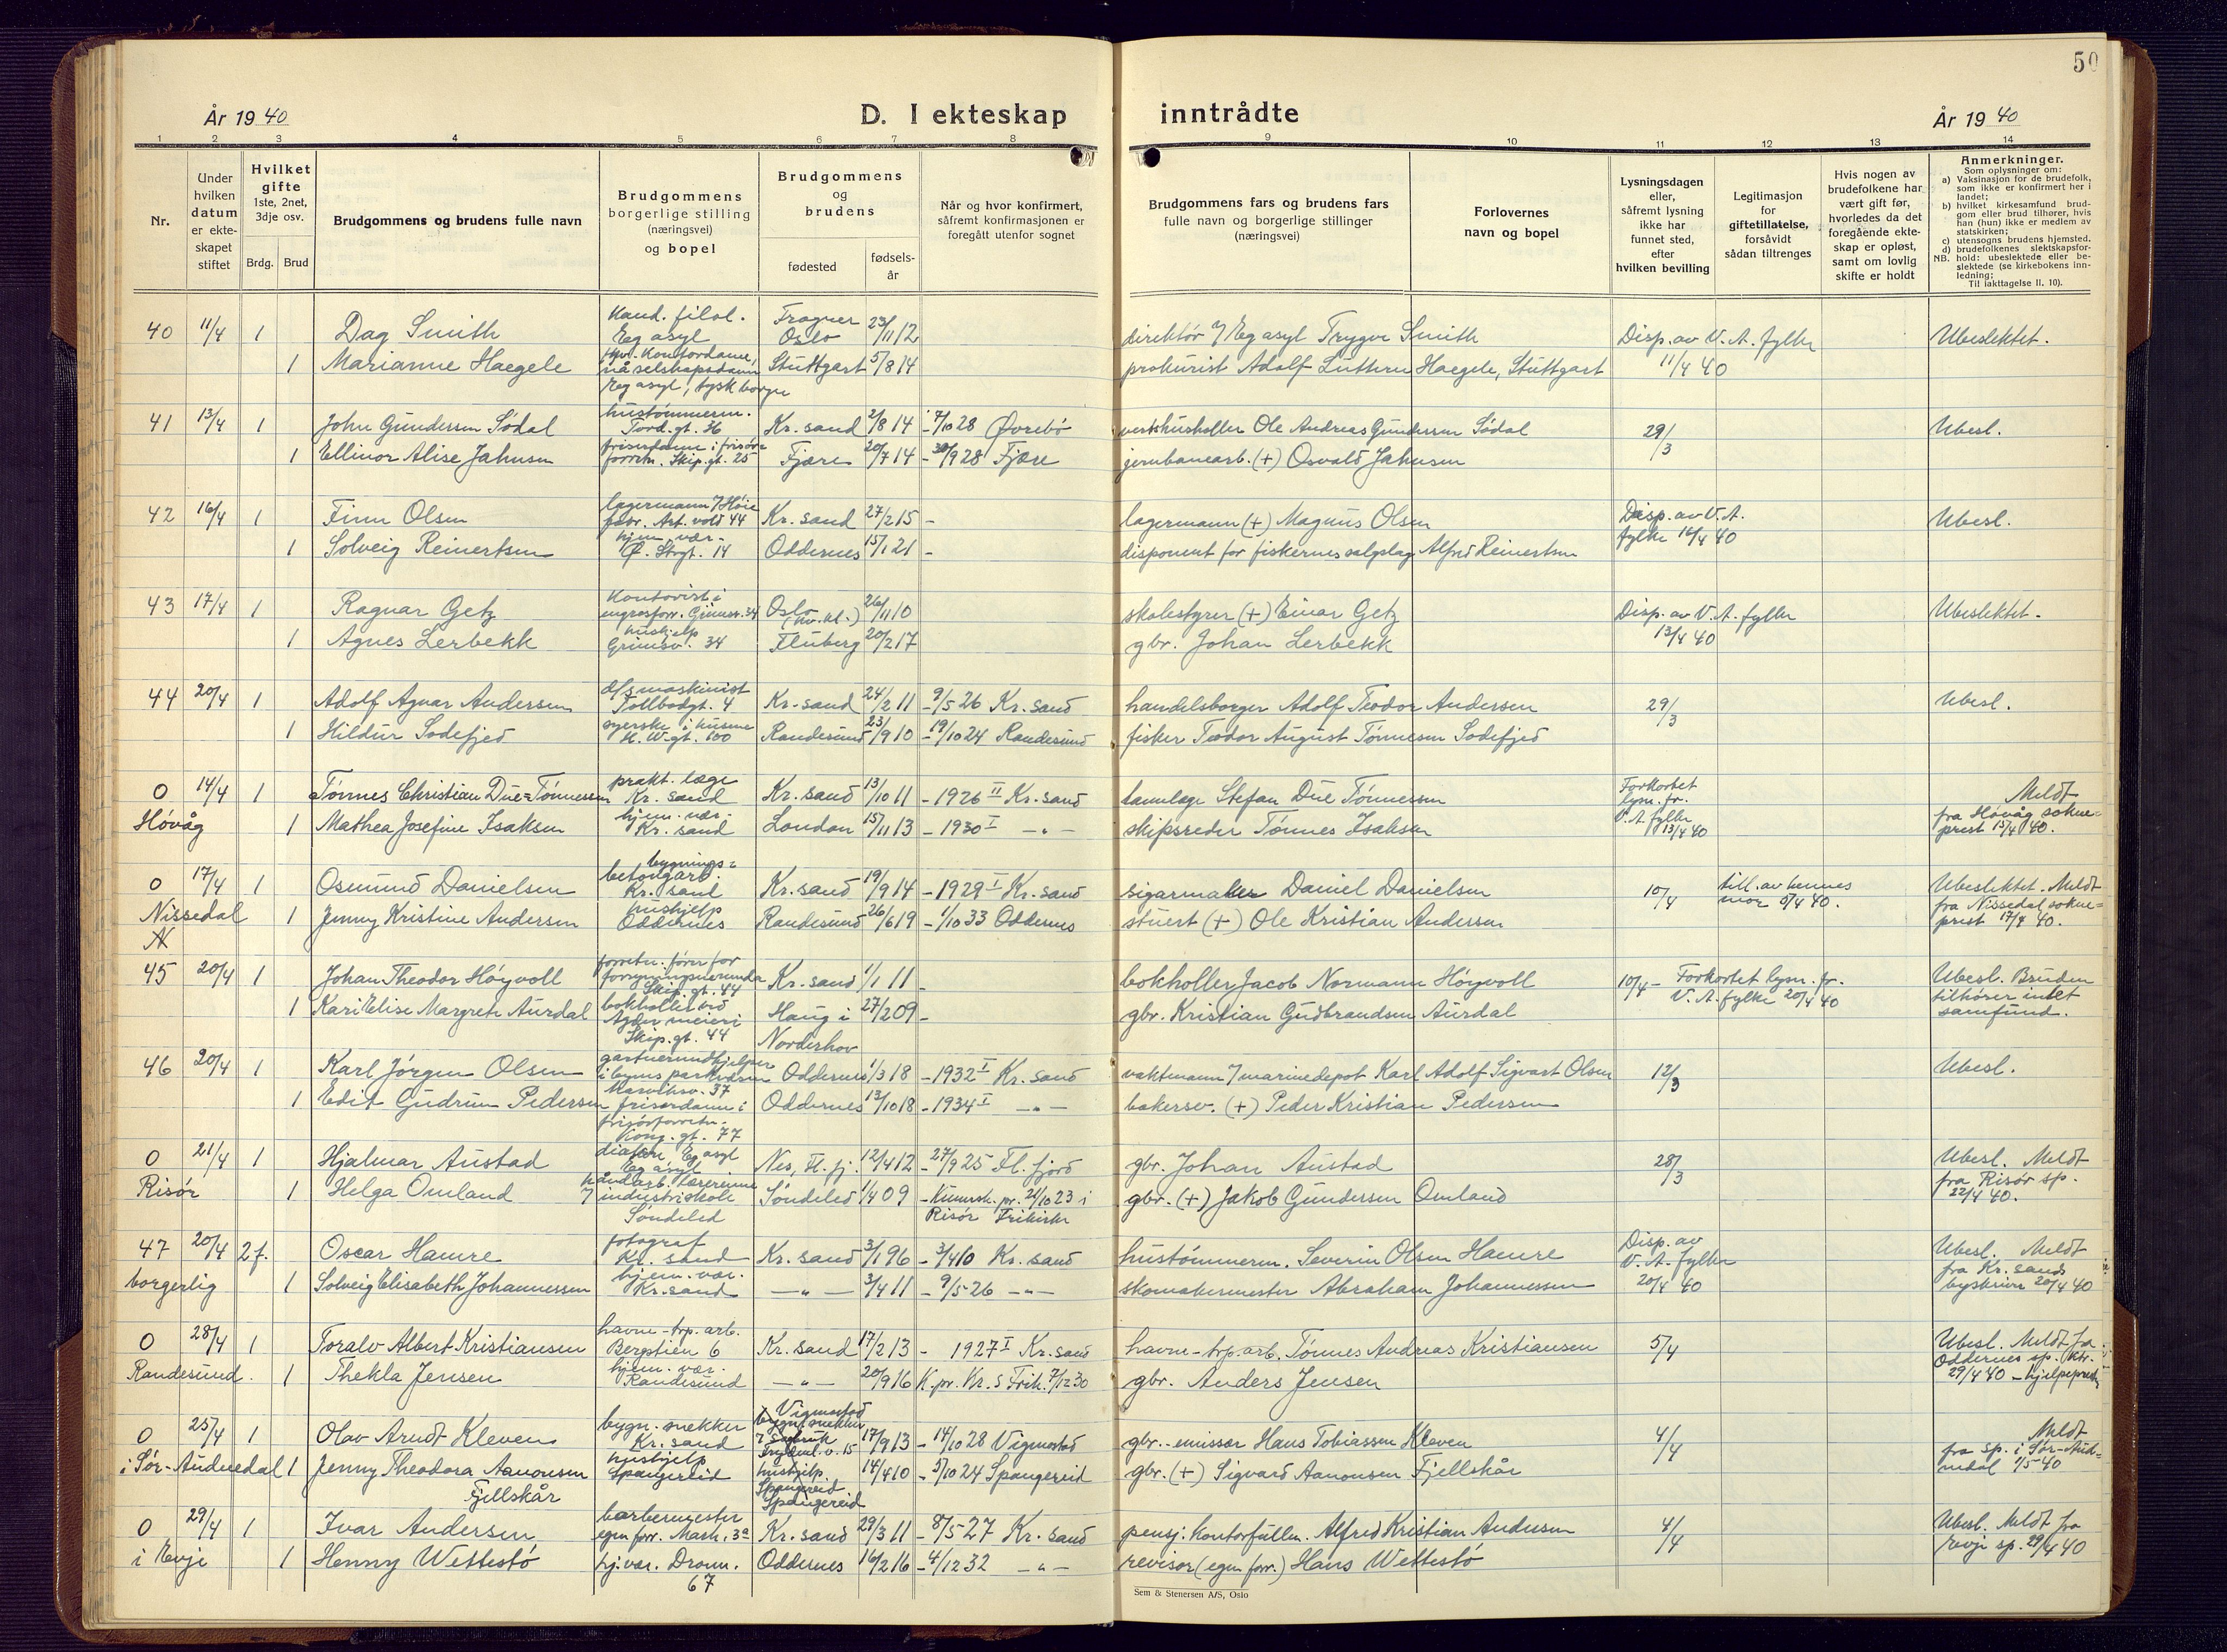 50
År 1940
D. I ekteskap inntrådte
År 1940
1 2 3 4 5 6 7 8 9 10 11 12 13 14
Nr.
Under hvilken datum er ekteskapet stiftet
Hvilket gifte 1ste, 2net, 3dje osv.
Brdg. Brud
Brudgommens og brudens fulle navn
Brudgommens borgerlige stilling (næringsvei) og bopel
Brudgommens og brudens
fødested
fødselsår
Når og hvor konfirmert, såfremt konfirmasjonen er foregått utenfor sognet
Brudgommens fars og brudens fars fulle navn og borgerlige stillinger (næringsvei)
Forlovernes navn og bopel
Lysningsdagen eller, såfremt lysning ikke har funnet sted, efter hvilken bevilling
Legitimasjon for giftetillatelse, forsåvidt sådan tiltrenges
Hvis nogen av brudefolkene har vært gift før, hvorledes da det foregående ekteskap er opløst, samt om lovlig skifte er holdt
Anmerkninger.
Som oplysninger om:
a) Vaksinasjon for de brudefolk, som ikke er konfirmert her i landet;
b) hvilket kirkesamfund brudgom eller brud tilhører, hvis han (hun) ikke er medlem av statskirken;
c) utensogns brudens hjemsted.
d) brudefolkenes slektskapsforhold: ubeslektede eller beslektede (se kirkebokens innledning;
NB.
Til iakttagelse II. 10).
40 11/4 1 Dag Smith Kand. filol. Eg asyl Frogner Oslo 23/11 12 direktør v/ Eg asyl Trygve Smith Disp. av V. A. fylke 11/4 40 Ubeslektet.
1 Marianne Haegele Eg asyl, tysk borger Stuttgart 5/8 14 prokurist Adolf Luthern Haegele, Stuttgart
41 13/4 1 John Gundersen Sødal hustømmerm. Tord. gt. 36 Kr.sand 2/8 14 - 7/10 28 Øvrebø vertshusholder Ole Andreas Gundersen Sødal 29/3 Ubesl.
1 Ellinor Alise Jahnsen friserdame i frisørforretn. Skip. gt. 25 Fjære 20/7 14 - 30/9 28 Fjære jernbanearb. (+) Osvald Jahnsen
42 16/4 1 Finn Olsen lagermann v/ Høie fabr. Art. vold 44 Kr.sand 27/2 15 - lagermann (+) Magnus Olsen Disp. av V. A. fylke 16/4 40 Ubesl.
1 Solveig Reinertsen hjem. vær. Ø. Strgt. 14 Oddernes 15/1 21 - disponent for fiskernes salgslag Alfred Reinertsen
43 17/4 1 Ragnar Getz Kontorist i engrosforr. Grimsv. 34 Oslo 26/11 10 skolestyrer (+) Einar Getz Disp. av V. A. fylke 13/4 40 Ubeslektet.
1 Agnes Lerbekk hushjelp Grimsv. 34 Fluberg 20/2 17 gbr. Johan Lerbekk
44 20/4 1 Adolf Agnar Andersen d/s maskinist Tollbodgt. 4 Kr.sand 24/2 11 - 9/5 26 Kr.sand handelsborger Adolf Teodor Andersen 29/3 Ubesl.
1 Hildur Sodefjed syerske i husene H. W. gt. 100 Randesund 23/9 10 - 19/10 24 Randesund fisker Teodor August Tønnesen Sodefjed
0 14/4 1 Tønnes Christian Due-Tønnessen prakt. læge Kr. sand Kr.sand 13/10 11 - 1926 II Kr.sand tannlæge Stefan Due Tønnessen Forkortet lysn. fr. V. A. fylke 13/4 40 Meldt fra Høvåg sokneprest 15/4 40.
Høvåg 1 Mathea Josefine Isaksen hjem. vær. Kr. sand London 15/11 13 - 1930 I - " - skipsreder Tønnes Isaksen
0 17/4 1 Osmund Danielsen bygnings= betongarb. Kr. sand Kr.sand 19/9 14 - 1929 I Kr.sand sigarmaker Daniel Danielsen 10/4 till. av hennes mor 8/4 40. Ubeslektet. Meldt fra Nissedal sokneprest 17/4 40.
Nissedal 1 Jenny Kristine Andersen hushjelp Oddernes Randesund 26/6 19 - 1/10 33 Oddernes stuert (+) Ole Kristian Andersen
45 20/4 1 Johan Theodor Høyvoll forretn. fører for forsyningsnemnda Skip. gt. 44 Kr.sand 1/1 11 - bokholler Jacob Normann Høyvoll 10/4 - Forkortet lysn. fr. V. A. fylke 20/4 40 Ubesl. Bruden tilhører intet samfund.
1 Kari Elise Margrete Aurdal bokholler ved Agder meieri Skip. gt. 44 Haug i Norderhov 27/2 09 - gbr. Kristian Gudbrandsen Aurdal
46 20/4 1 Karl Jørgen Olsen gartnerundhjelper i byens parkvæsen 37 Oddernes 1/3 18 - 1932 I Kr.sand vaktmann v/ marinedepot Karl Adolf Sigvart Olsen 12/3 Ubesl.
1 Edit Gudrun Pedersen friserdame i frisørforretn. Kong. gt. 77 Oddernes 13/10 18 - 1934 I - " - bakersv. (+) Peder Kristian Pedersen
0 21/4 1 Hjalmar Austad diakon, Eg asyl Eg asyl Nes, Fl. fj. 12/4 12 - 27/9 25 Fl. fjord gbr. Johan Austad 28/3 Ubesl. Meldt fra Risør sp. 22/4 40.
Risør 1 Helga Omland håndarb. lærerinne v/ industriskole Søndeled Søndeled 1/4 09 - Kunnsk. pr. 21/10 23 i Risør Frikirke gbr. (+) Jakob Gundersen Omland
47 20/4 2 f. Oscar Hamre fotograf Kr. sand Kr.sand 3/1 96 - 3/4 10 Kr.sand hustømmerm. Severin Olsen Hamre Disp. av V. A. fylke 20/4 40 Ubesl. Meldt fra Kr. sands byskriver 20/4 40
borgerlig 1 Solveig Elisabeth Johannessen hjem. vær. Kr.sand - " - 3/4 11 - 9/5 26 - " - skomakermester Abraham Johannessen
0 28/4 1 Toralv Albert Kristiansen havne-trp. arb. Bergstien 6 Kr.sand 17/2 13 - 1927 I Kr.sand havne-trp. arb. Tønnes Andreas Kristiansen 5/4 Ubesl. Meldt fra Oddernes sp. ktr. 29/4 40 - hjelpeprest
Randesund. 1 Thekla Jensen hjem. vær. Randesund - " - 20/9 16 K. pr. Kr. S Frik. 7/12 30 gbr. Anders Jensen
0 25/4 1 Olav Arndt Kleven bygn. snekker Kr. sand Vigmostad 17/9 13 - 14/10 28 Vigmostad gbr. - emissær Hans Tobiassen Kleven 4/4 Meldt fra sp. i Sør-Audnedal 1/5 40
i Sør-Audnedal 1 Jenny Theodora Aanonsen Fjellskår hushjelp Spangereid hushjelp. Spangereid Spangereid 14/4 10 - 5/10 24 Spangereid gbr. (+) Sigvard Aanonsen Fjellskår
0 29/4 1 Ivar Andersen barbermester egen forr. Mark. 3a Kr.sand 29/3 11 - 8/5 27 Kr.sand pensj. kontorfullm. Alfred Kristian Andersen 4/4 Ubesl. Meldt fra Evje sp. 29/4 40
i Evje 1 Henny Wettestø hj. vær. Dronn. 67 Oddernes 16/2 16 - 4/12 32 - " - revisor (egen forr.) Hans Wettestø
Sem & Stenersen A/S, Oslo